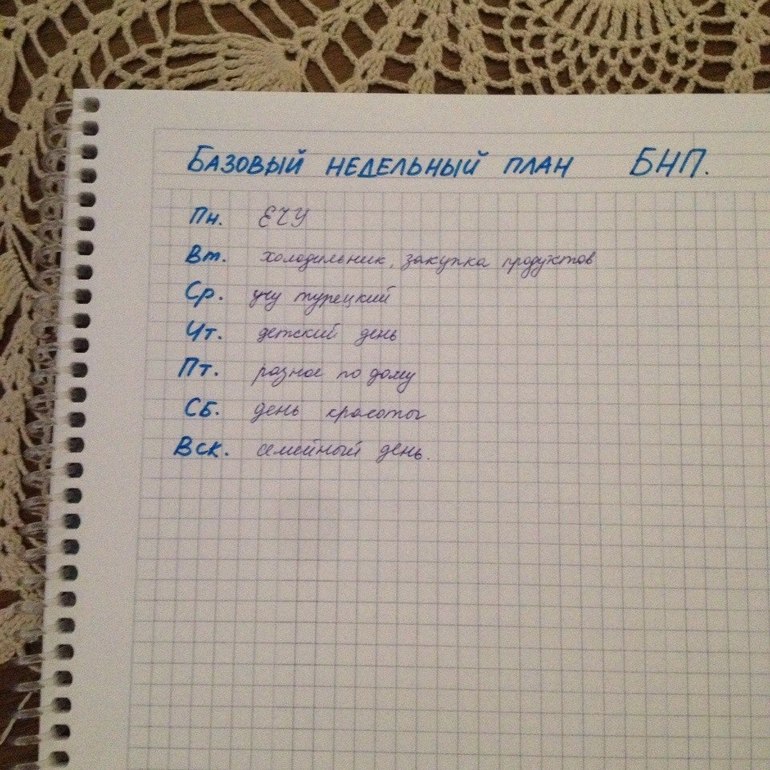 БАЗОВЫЙ НЕДЕЛЬНЫЙ ПЛАН БНП.
Пн. ЕЧУ
Вт. холодильник, закупка продуктов
Ср. учу турецкий
Чт. детский день
Пт. разное по дому
Сб. день красоты
Вск. семейный день.